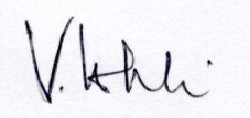 V. Kohli